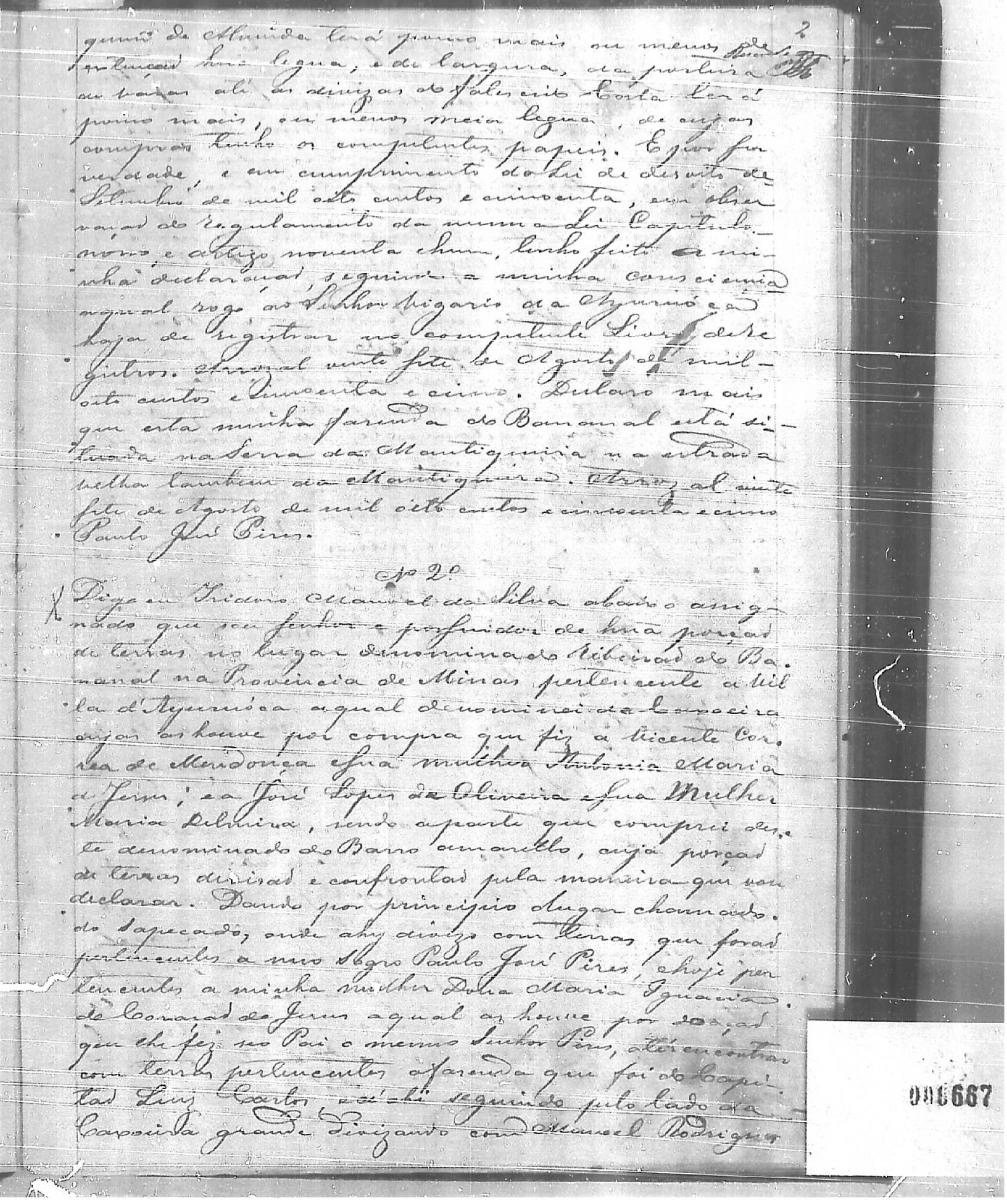 2
de Almeida terá pouco mais ou menos de
extençaõ hua legua; e de largura, da
do até as divizas do Felesbid Costa terá
pouco mais, ou menos meia legua, de cujas
compras tenho os competentes papeis. E por ser
verdade, e em cumprimento da Lei de desoito de
Setembro de mil oito centos e cincoenta, e em obser
vaçaõ do regulamento da mesma Lei Capitulo
nono, e artigo noventa e hum, tenho feito a mi-
nha declaraçaõ, seguindo a minha consciencia
a qual rogo ao Senhor Vigario da Ayuruóca
haja de registrar no competente Livro de Re
gistros. Arrozal vinte sete de Agosto de mil
oito centos e cincoenta e cinco. Declaro mais
que esta minha fazenda do Bananal está si-
tuada na Serra da Mantiqueira na estrada
velha tambem da Mantiqueira. Arrozal vinte
sete de Agosto de mil oito centos e cincoenta e cinco
Paulo José Pires.
Nº 2º
X Digo eu Izidoro Manoel da Silva abaixo assig-
nado que sou senhor e possuidor de hua porçaõ
de terras no lugar denominado Ribeiraõ do Ba-
nanal na Provincia de Minas pertencente a Vil
la d'Ayuruóca a qual denominei da Caxoeira
cujas as houve por compra que fiz a Vicente Cor-
rea de Mendonça e sua mulher Antonia Maria
de Jesus; e a José Lopes de Oliveira e sua Mulher
Maria Delmira, sendo a parte que comprei des-
te denominado do Barro amarello, cuja porçaõ
de terras divisaõ e confrontaõ pela maneira que vou
declarar. Dando por principio o lugar chamado
do Sapecado, onde ahy divizo com terras que foraõ
pertencentes a meo Sogro Paulo José Pires, e hoje per
tencentes a minha mulher Dona Maria Ignacia
do Coraçaõ de Jesus a qual as houve por doaçaõ
que lhe fez seo Pai o mesmo Senhor Pires, até encontrar
com terras pertencentes a fazenda que foi do Capi
taõ Luis Carlos, e d'ahi seguindo pelo lado da
Caxoeira grande divizando com Manoel Rodrigues
000667